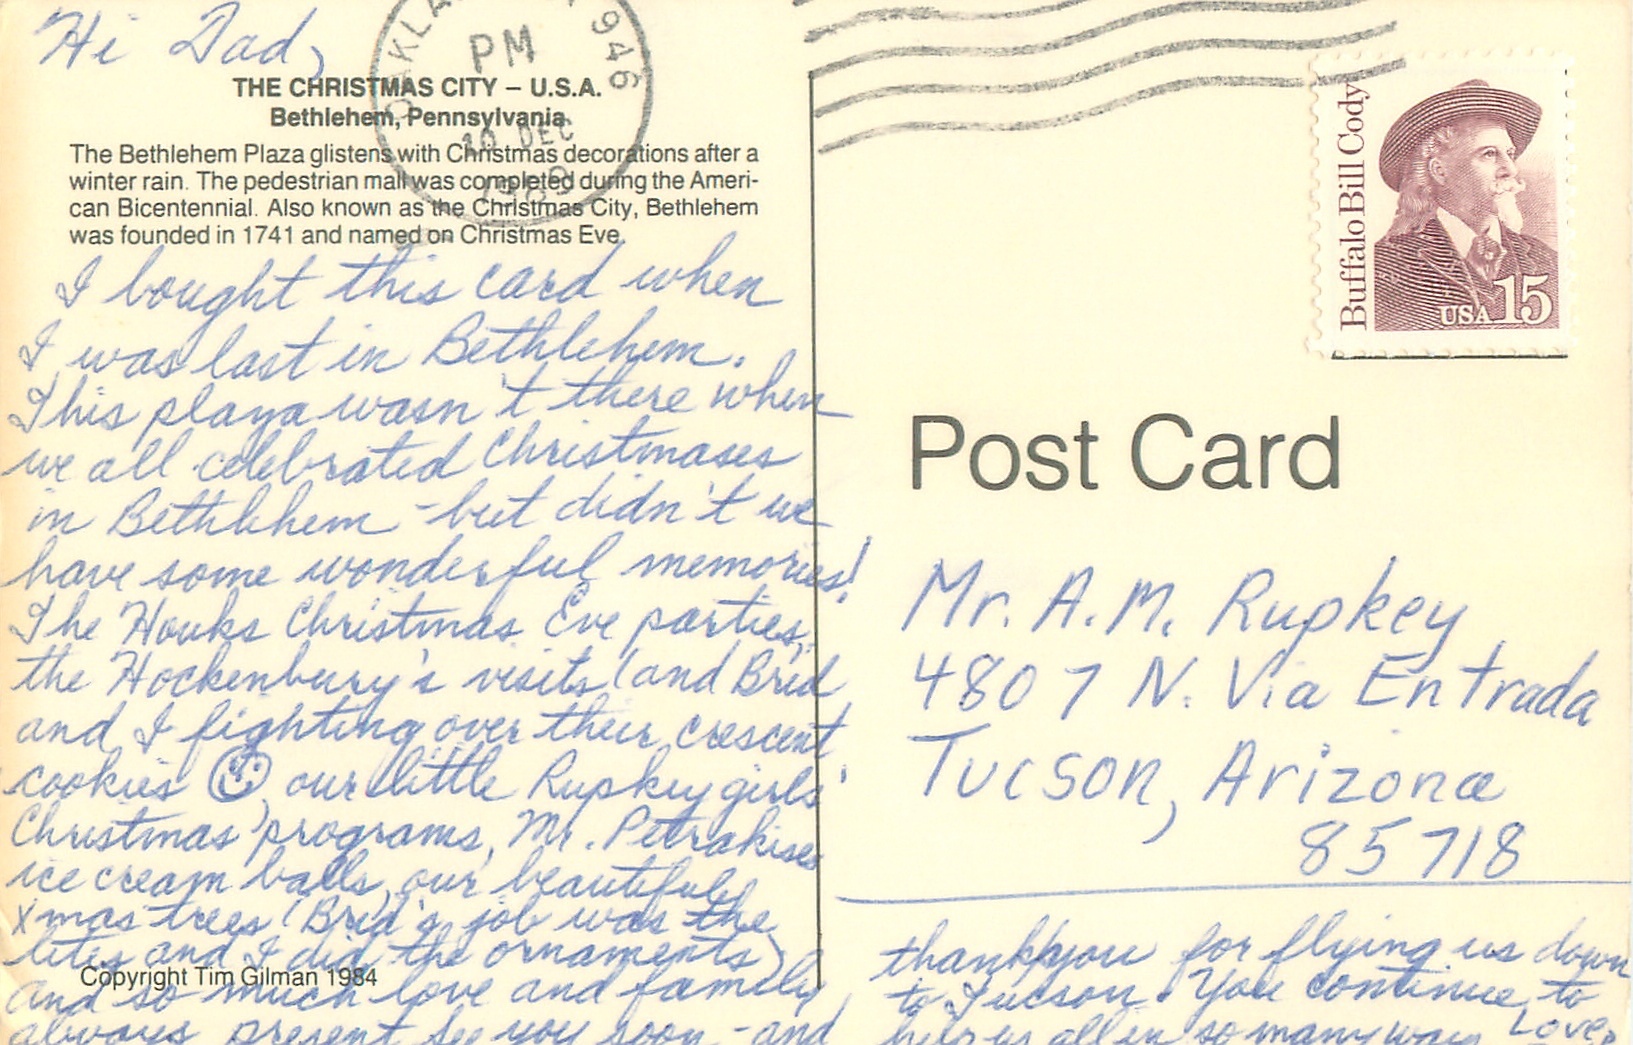 Hi Dad,
OAKLA 946
PM
10 DEC
1989
THE CHRISTMAS CITY – U.S.A.
Bethlehem, Pennsylvania
The Bethlehem Plaza glistens with Christmas decorations after a
winter rain. The pedestrian mall was completed during the Ameri-
can Bicentennial. Also known as the Christmas City, Bethlehem
was founded in 1741 and named on Christmas Eve.
I bought this card when
I was last in Bethlehem.
This plaza wasn't there when
we all celebrated Christmases
in Bethlehem - but didn't we
have some wonderful memories!
The Houks Christmas Eve parties,
the Hockenbury's visits (and Brid
and I fighting over their crescent
cookies our little Rupkey girls'
Christmas programs, Mr. Petrakises
ice cream balls, our beautiful
Xmas trees (Brid's job was the
lites and I did the ornaments)
and so much love and family
always present see you soon - and
Copyright Tim Gilman 1984
Buffalo Bill Cody
USA 15
Post Card
Mr. A.M. Rupkey
4807 N. Via Entrada
Tucson, Arizona
85718
thank you for flying us down
to Tucson. You continue to
help us all in so many ways Love,